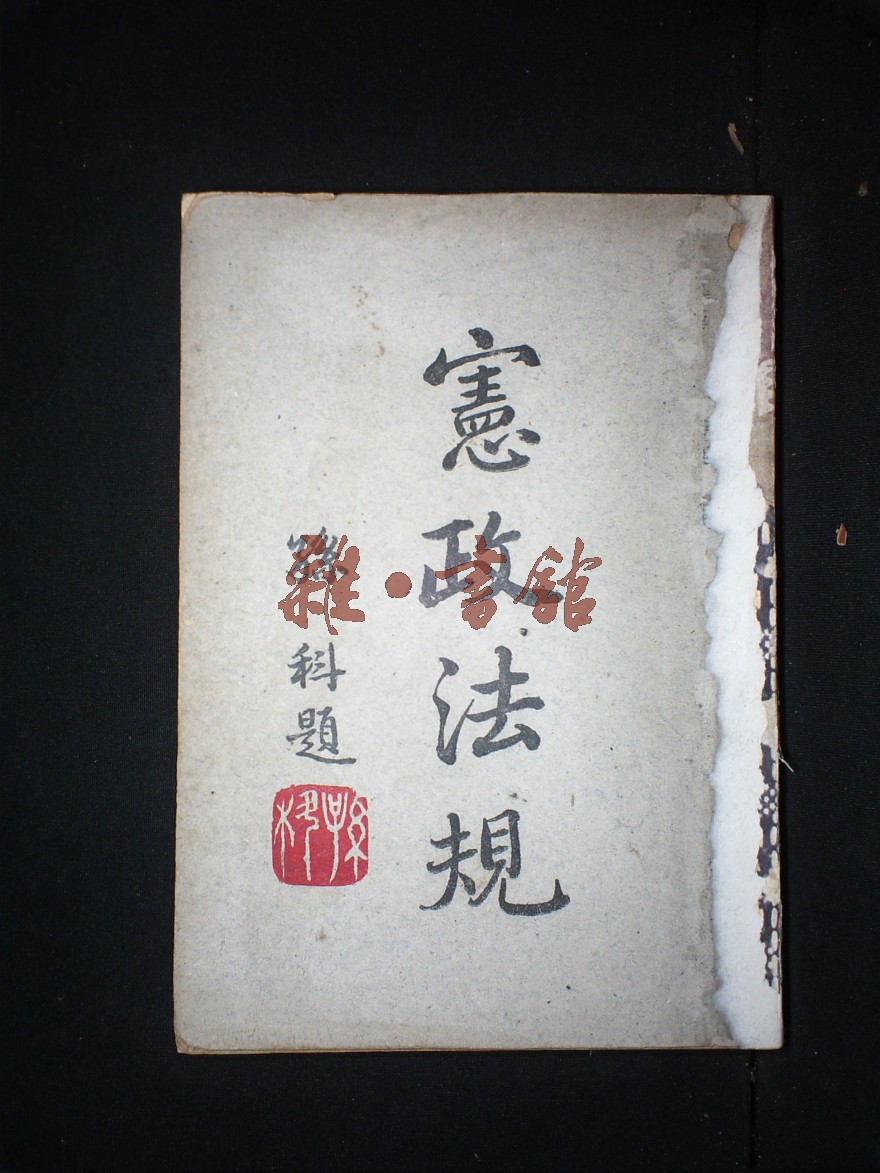 憲政法規
孫科題
雜·書館